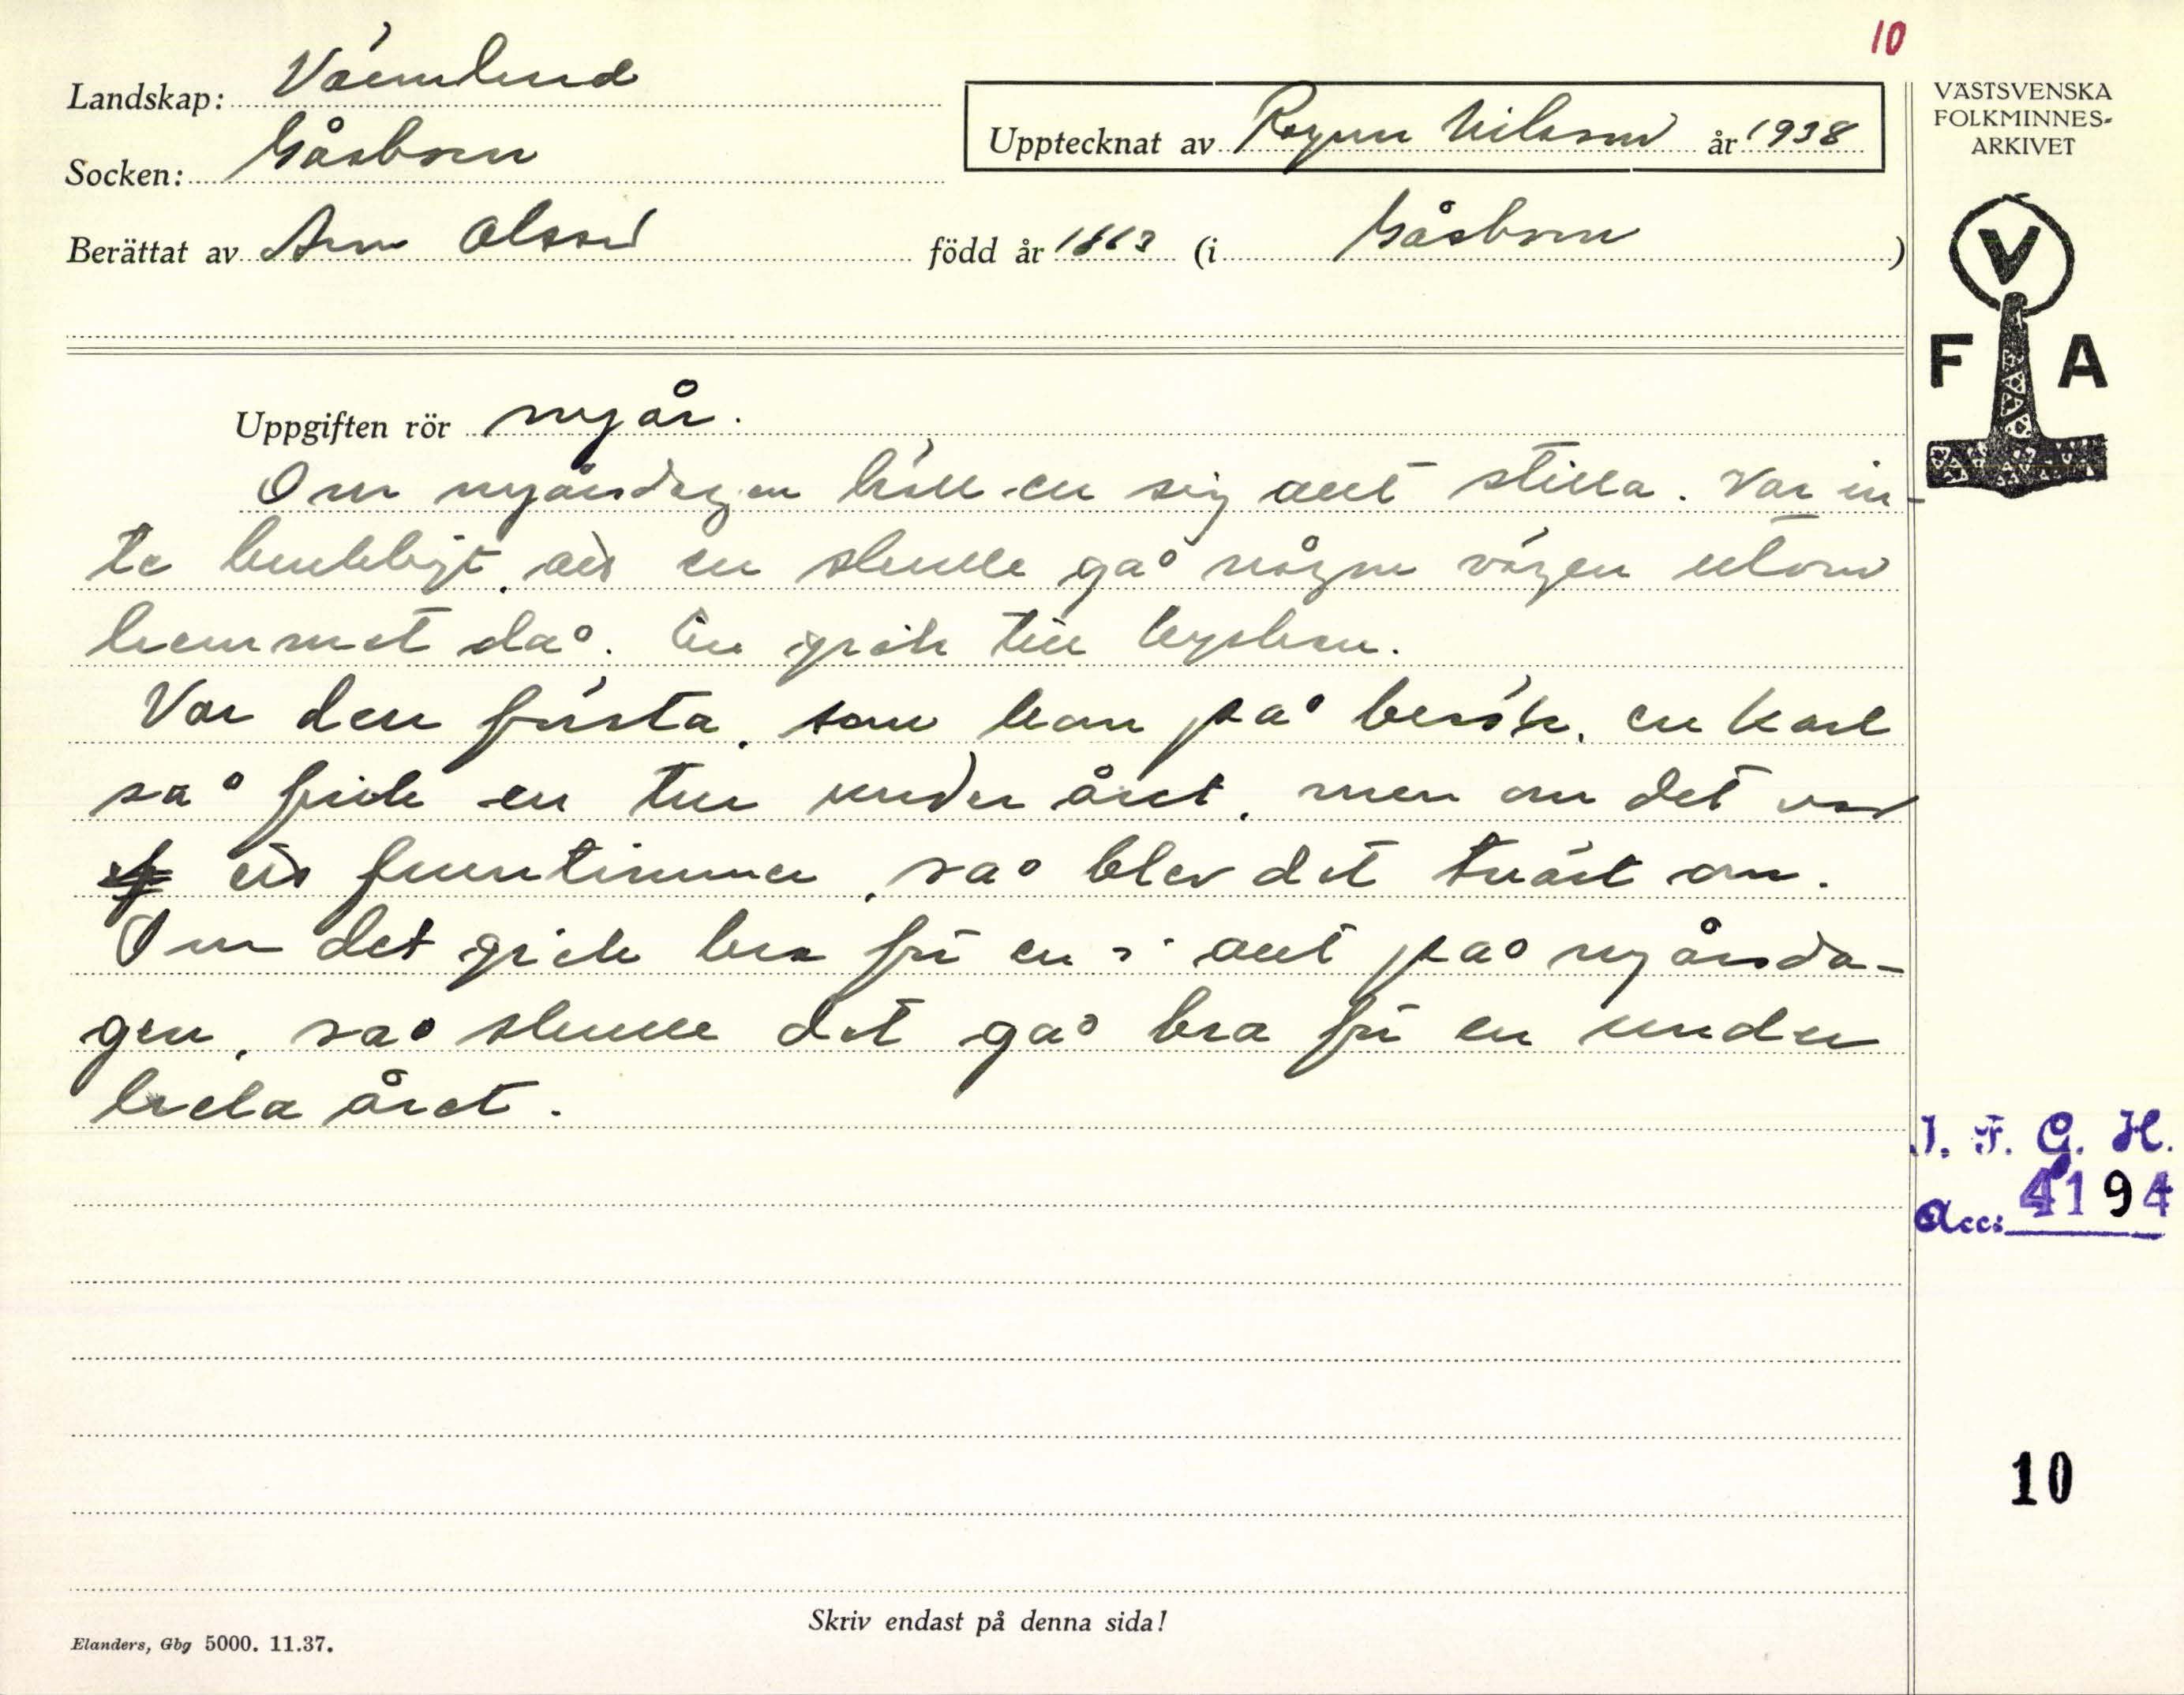 10
Landskap: Värmland
Socken: Gåsborn
Upptecknat av Ragnar Nilsson år 1938
Berättat av Anna Olsson född år 1863 (i Gåsborn )
VÄSTSVENSKA
FOLKMINNES-
ARKIVET
V
F A
Uppgiften rör nyår.
Om nyårsdagen höll en sig allt stilla. Var in-
te lent, att en skulle gå någon vägen utom
hemmet då. En gick till kyrkan.
Var den första, som kom på besök, en karl
så fick en tur under året, men om det var
ett fruntimmer, så blev det tvärt om.
Om det gick bra för en i allt på nyårsda-
gen, så skulle det gå bra för en under
hela året.
I. F. G. H.
Acc: 4194
10
Skriv endast på denna sida!
Elanders, Gbg 5000. 11.37.